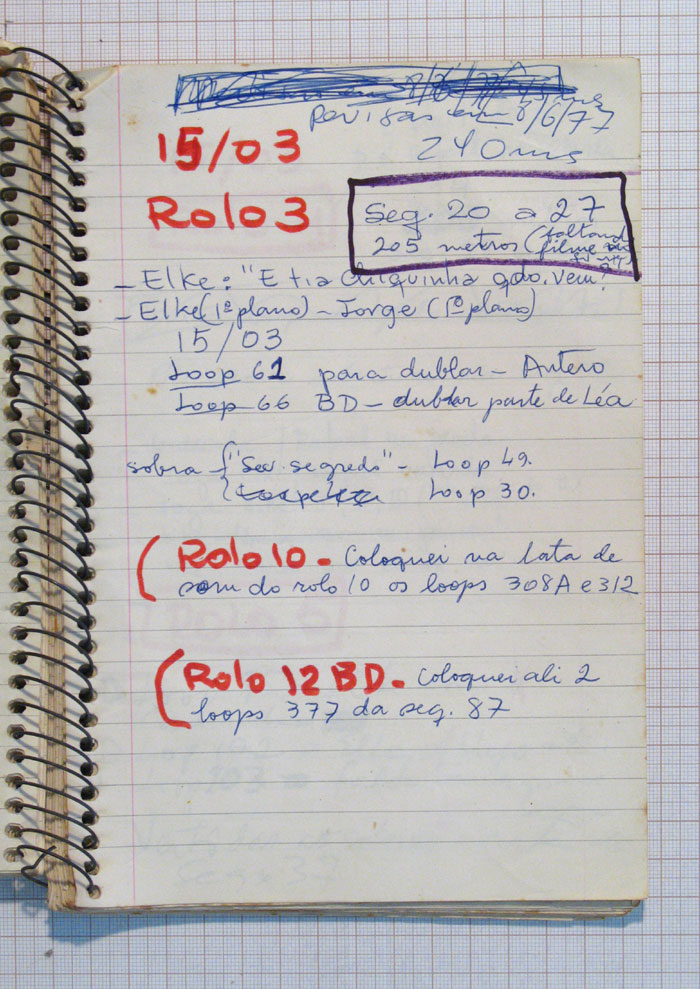 em 8/6/77
15/03
240ms
Rolo 3
Seq. 20 a 27
205 metros (faltand
filme
- Elke: "E tia Chiquinha qdo. vem?
- Elke (1º plano) - Jorge (1º plano)
15/03
Loop 61 para dublar - Antero
Loop 66 BD - dublar parte de Léa
sobra - { "Seu segredo" - Loop 49.
Loop 30.
( Rolo 10 - Coloquei na lata de
som do rolo 10 os loops 308A e 312
( Rolo 12 BD - Coloquei ali 2
loops 377 da seq. 87